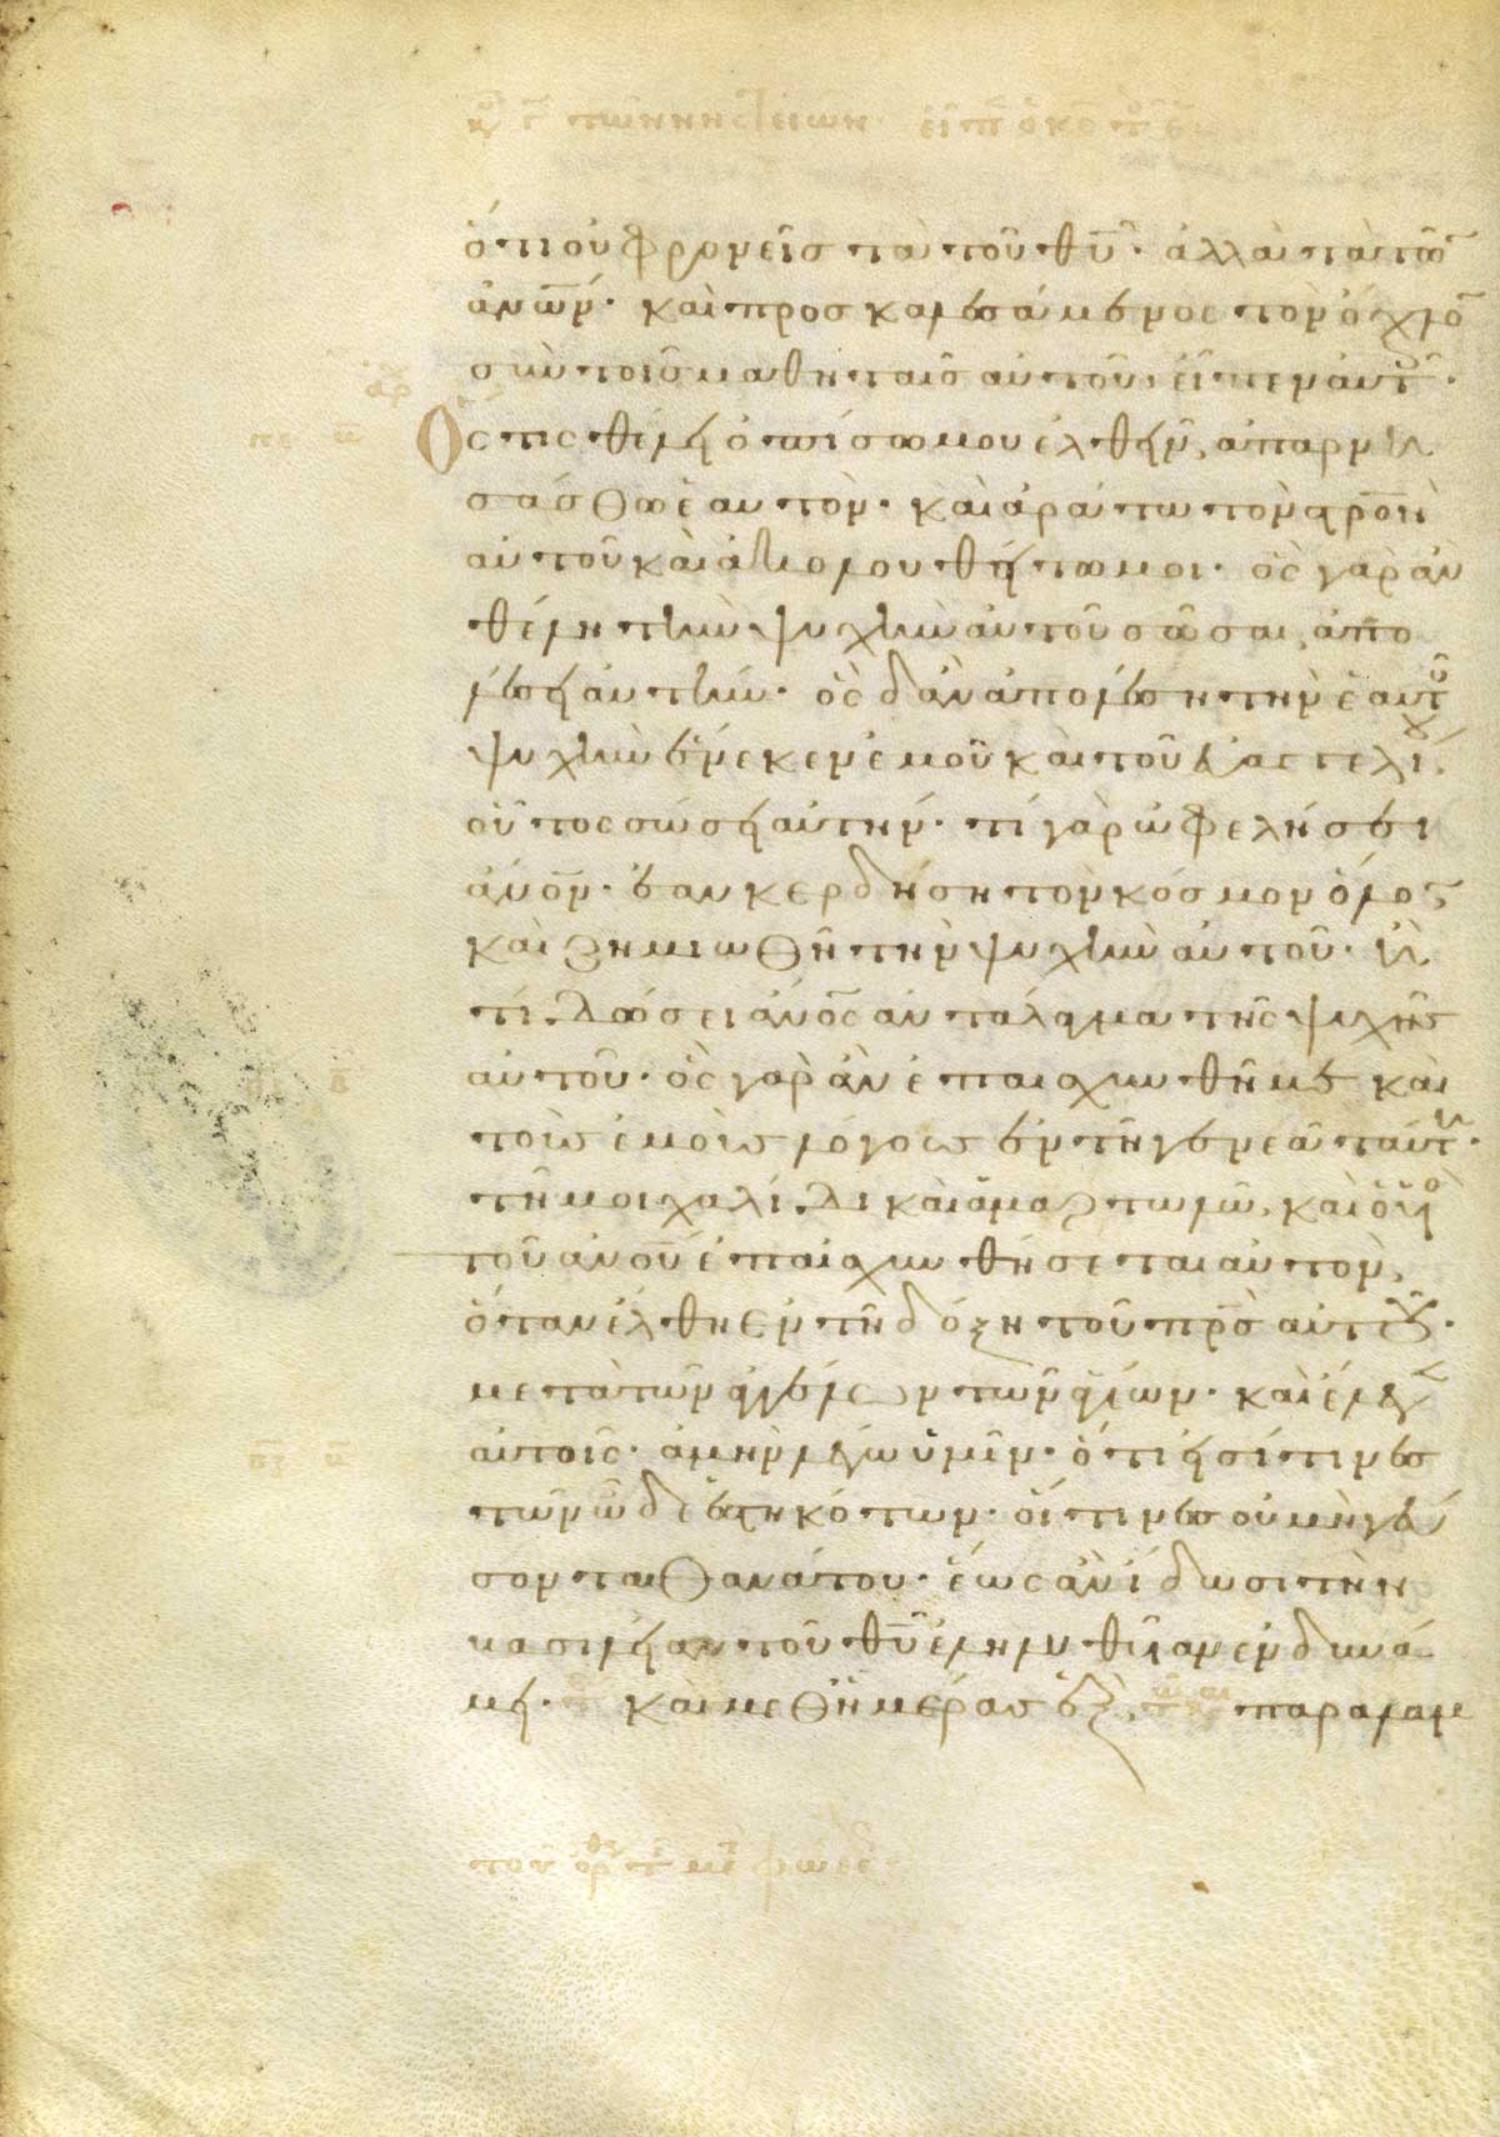 ὅτι οὐ φρονεῖς τὰ τοῦ θυ̅· ἀλλὰ τὰ τῶ̅
ἀνω̅ν· καὶ προσκαλεσάμενος τὸν ὄχλο̅
σὺν τοῖς μαθηταῖς αὐτοῦ, εἶπεν αὐτ·
Ὅστις θέλει ὀπίσω μου ἐλθεῖν, ἀπαρνη
σάσθω ἑαυτόν· καὶ ἀράτω τὸν στρο̅ν
αὐτοῦ καὶ ἀκολουθείτω μοι· ὃς γὰρ ἂν
θέλη τὴν ψυχὴν αὐτοῦ σῶσαι, ἀπο
λέσει αὐτήν· ὃς δ' ἂν ἀπολέση τὴν ἑαυτοῦ
ψυχὴν ἕνεκεν ἐμοῦ καὶ τοῦ εὐαγγελίου·
οὗτος σώσει αὐτήν· τί γὰρ ὠφελήσει
ἀνο̅ν· ἐὰν κερδήση τὸν κόσμον ὅλο̅
καὶ ζημιωθῆ τὴν ψυχὴν αὐτοῦ· ἢ
τί δώσει ἀνο̅ς ἀντάλαγμα τῆς ψυχῆς
αὐτοῦ· ὃς γὰρ ἂν ἐπαισχυνθῆ με καὶ
τοὺς ἐμοὺς λόγους ἐν τῆ γενεᾶ ταύτη·
τῆ μοιχαλίδι καὶ ἁμαρτωλῶ, καὶ ὁ υἱὸ
τοῦ ἀνου̅ ἐπαισχυνθήσεται αὐτόν,
ὅταν ἔλθη ἐν τῆ δόξη τοῦ πρς̅ αὐτοῦ·
μετὰ τῶν ἀγγέλων τῶν ἁγίων· καὶ ἔλεγ
αὐτοῖς· ἀμὴν λέγω ὑμῖν· ὅτι εἰσί τινες
τῶν ὧδε ἑστηκότων· οἵτινες οὐ μὴ γεύ
σονται θανάτου· ἕως ἂν ἴδωσι τὴν
βασιλείαν τοῦ θυ̅ ἐληλυθῖαν ἐν δυνά
μει· καὶ μεθ' ἡμέρας ἓξ, παραλαμ